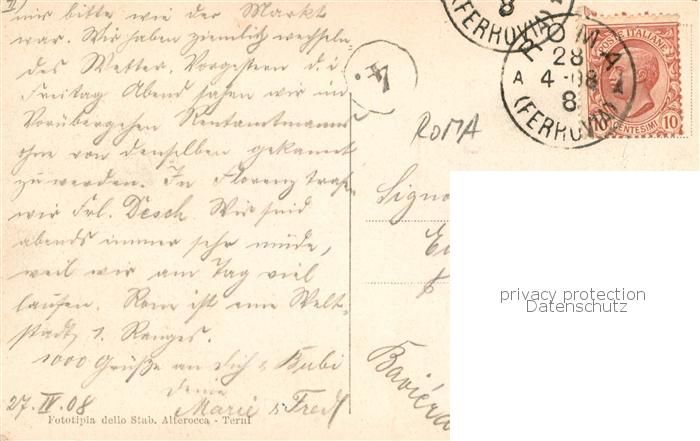 II)
mir bitte wie der Markt
war. Wir haben ziemlich wechseln
des Wetter. Vorgestern d. i.
Freitag Abend sahen wir im
Vorübergehen Rentamtmanns
ohne von denselben gekannt
zu werden. In Florenz trafen
wir Frl. Desch. Wir sind
abends immer sehr müde,
weil wir am Tag viel
laufen. Rom ist eine Welt-
stadt 1. Ranges.
1000 Grüße an dich & Bubi
deine
Marie & Fredl
27. IV. 08
Fototipia dello Stab. Alterocca - Terni
8
(FERROVIA)
ROMA
28
A 4-08
8
(FERROVIA)
POSTE ITALIANE
10 CENTESIMI 10
4.
ROMA
Signo
Baviera
privacy protection
Datenschutz